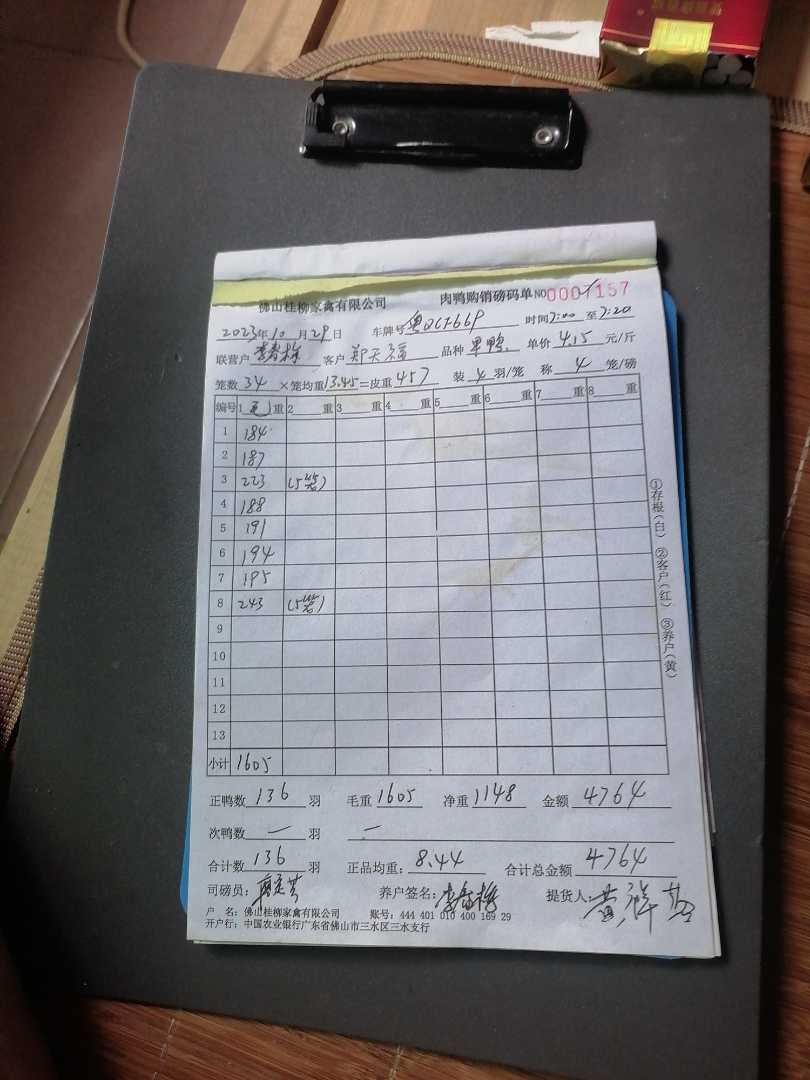 佛山桂柳家禽有限公司 肉鸭购销磅码单 NO 0007157
2023年10月29日 车牌号 时间7:00至7:20
联营户 客户 郑天福 品种 单价 4.15 元/斤
笼数 34 ×笼均重13.45=皮重 457 装 4 羽/笼 称 4 笼/磅
编号 1 重 2 重 3 重 4 重 5 重 6 重 7 重 8 重
1 184
2 187
3 223 (5笼)
4 188
5 191
6 194
7 195
8 243 (5笼)
9
10
11
12
13
小计 1605
①存根(白) ②客户(红) ③养户(黄)
正鸭数 136 羽 毛重 1605 净重 1148 金额 4764
次鸭数 一 羽 一
合计数 136 羽 正品均重: 8.44 合计总金额 4764
司磅员: 养户签名: 提货人:
户 名: 佛山桂柳家禽有限公司 账号: 444 401 010 400 169 29
开户行: 中国农业银行广东省佛山市三水区三水支行